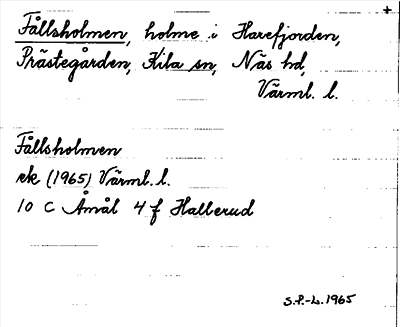 +
Fållsholmen, holme i Harefjorden,
Prästegården, Kila sn, Näs hd,
Värml. l.
Fållsholmen
ek (1965) Värml. l.
10 C Åmål 4 f Hallerud
S.P.-L. 1965